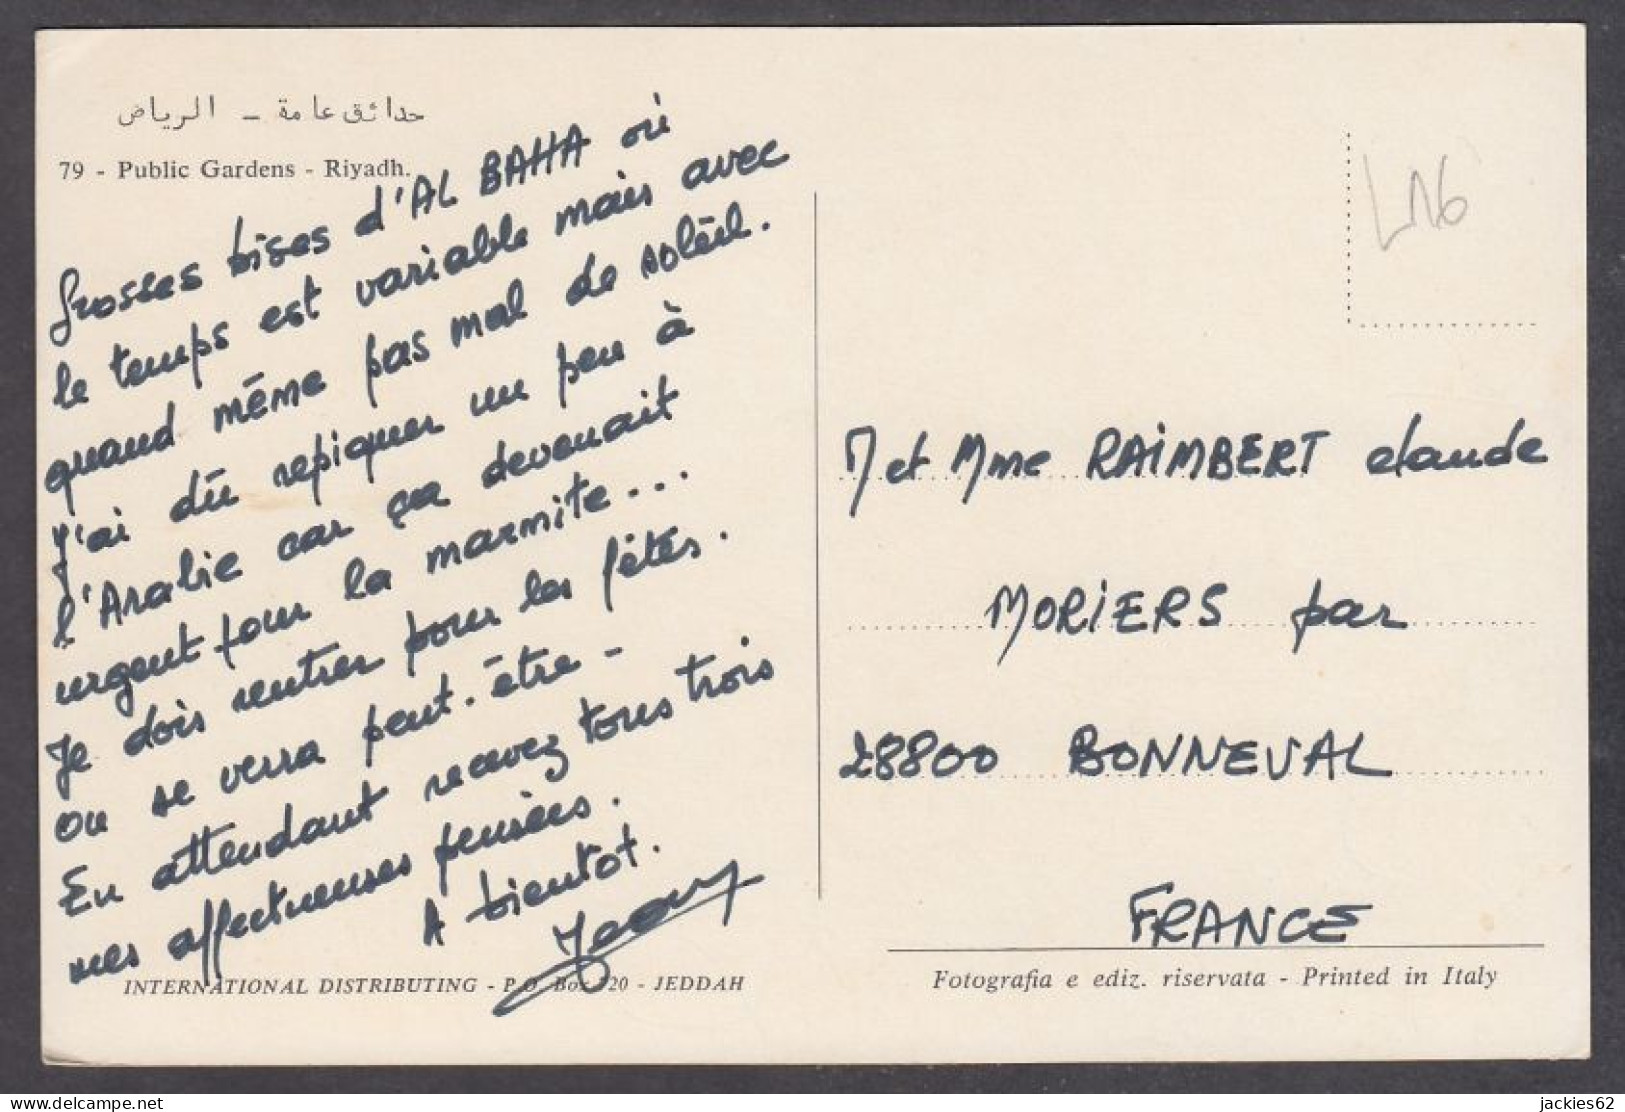 حدائق عامة - الرياض
79 - Public Gardens - Riyadh.
Grosses bises d'AL BAHA où
le temps est variable mais avec
quand même pas mal de soleil.
J'ai dû repiquer un peu à
l'Arabie car ça devenait
urgent pour la marmite...
Je dois rentrer pour les fêtes.
On se verra peut-être -
En attendant recevez tous trois
mes affectueuses pensées.
A bientot.
INTERNATIONAL DISTRIBUTING - P.O. Box 720 - JEDDAH
LN6
M et Mme RAIMBERT claude
MORIERS par
28800 BONNEVAL
FRANCE
Fotografia e ediz. riservata - Printed in Italy
jackies62
delcampe.net